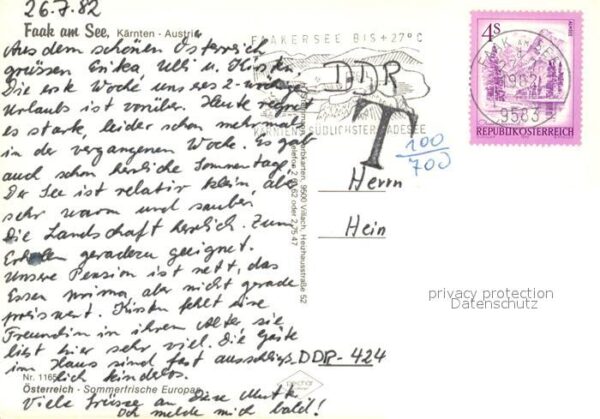 26.7.82
Faak am See, Kärnten - Austria
Aus dem schönen Österreich
grüssen Erika Ulli u. Kirsten.
Die erste Woche unseres 2-wöchigen
Urlaubs ist vorüber. Heute regnet
es stark, leider schon mehrmals
in der vergangenen Woche. Es gab
auch schon herliche Sommertage.
Der See ist relativ klein, aber
sehr warm und sauber.
Die Landschaft herlich. Zum
Erholen geradezu geeignet.
Unsere Pension ist nett, das
Essen prima aber nicht gerade
preiswert. Kirsten fehlt eine
Freundin in ihrem Alter sie
liest hier sehr viel. Die Gäste
im Haus sind fast ausschließ-
lich kinderlos.
Viele Grüsse an Deine Mutti
Ich melde mich bald!
Nr. 1165
Österreich - Sommerfrische Europas
9500 Villach, Heizhausstraße 52
FAAKERSEE BIS +27°C
KÄRNTENS SÜDLICHSTER BADESEE
DDR
T
100
700
4S
REPUBLIK ÖSTERREICH
FAAK AM SEE
9583
Herrn
Hein
DDR-424
privacy protection
Datenschutz